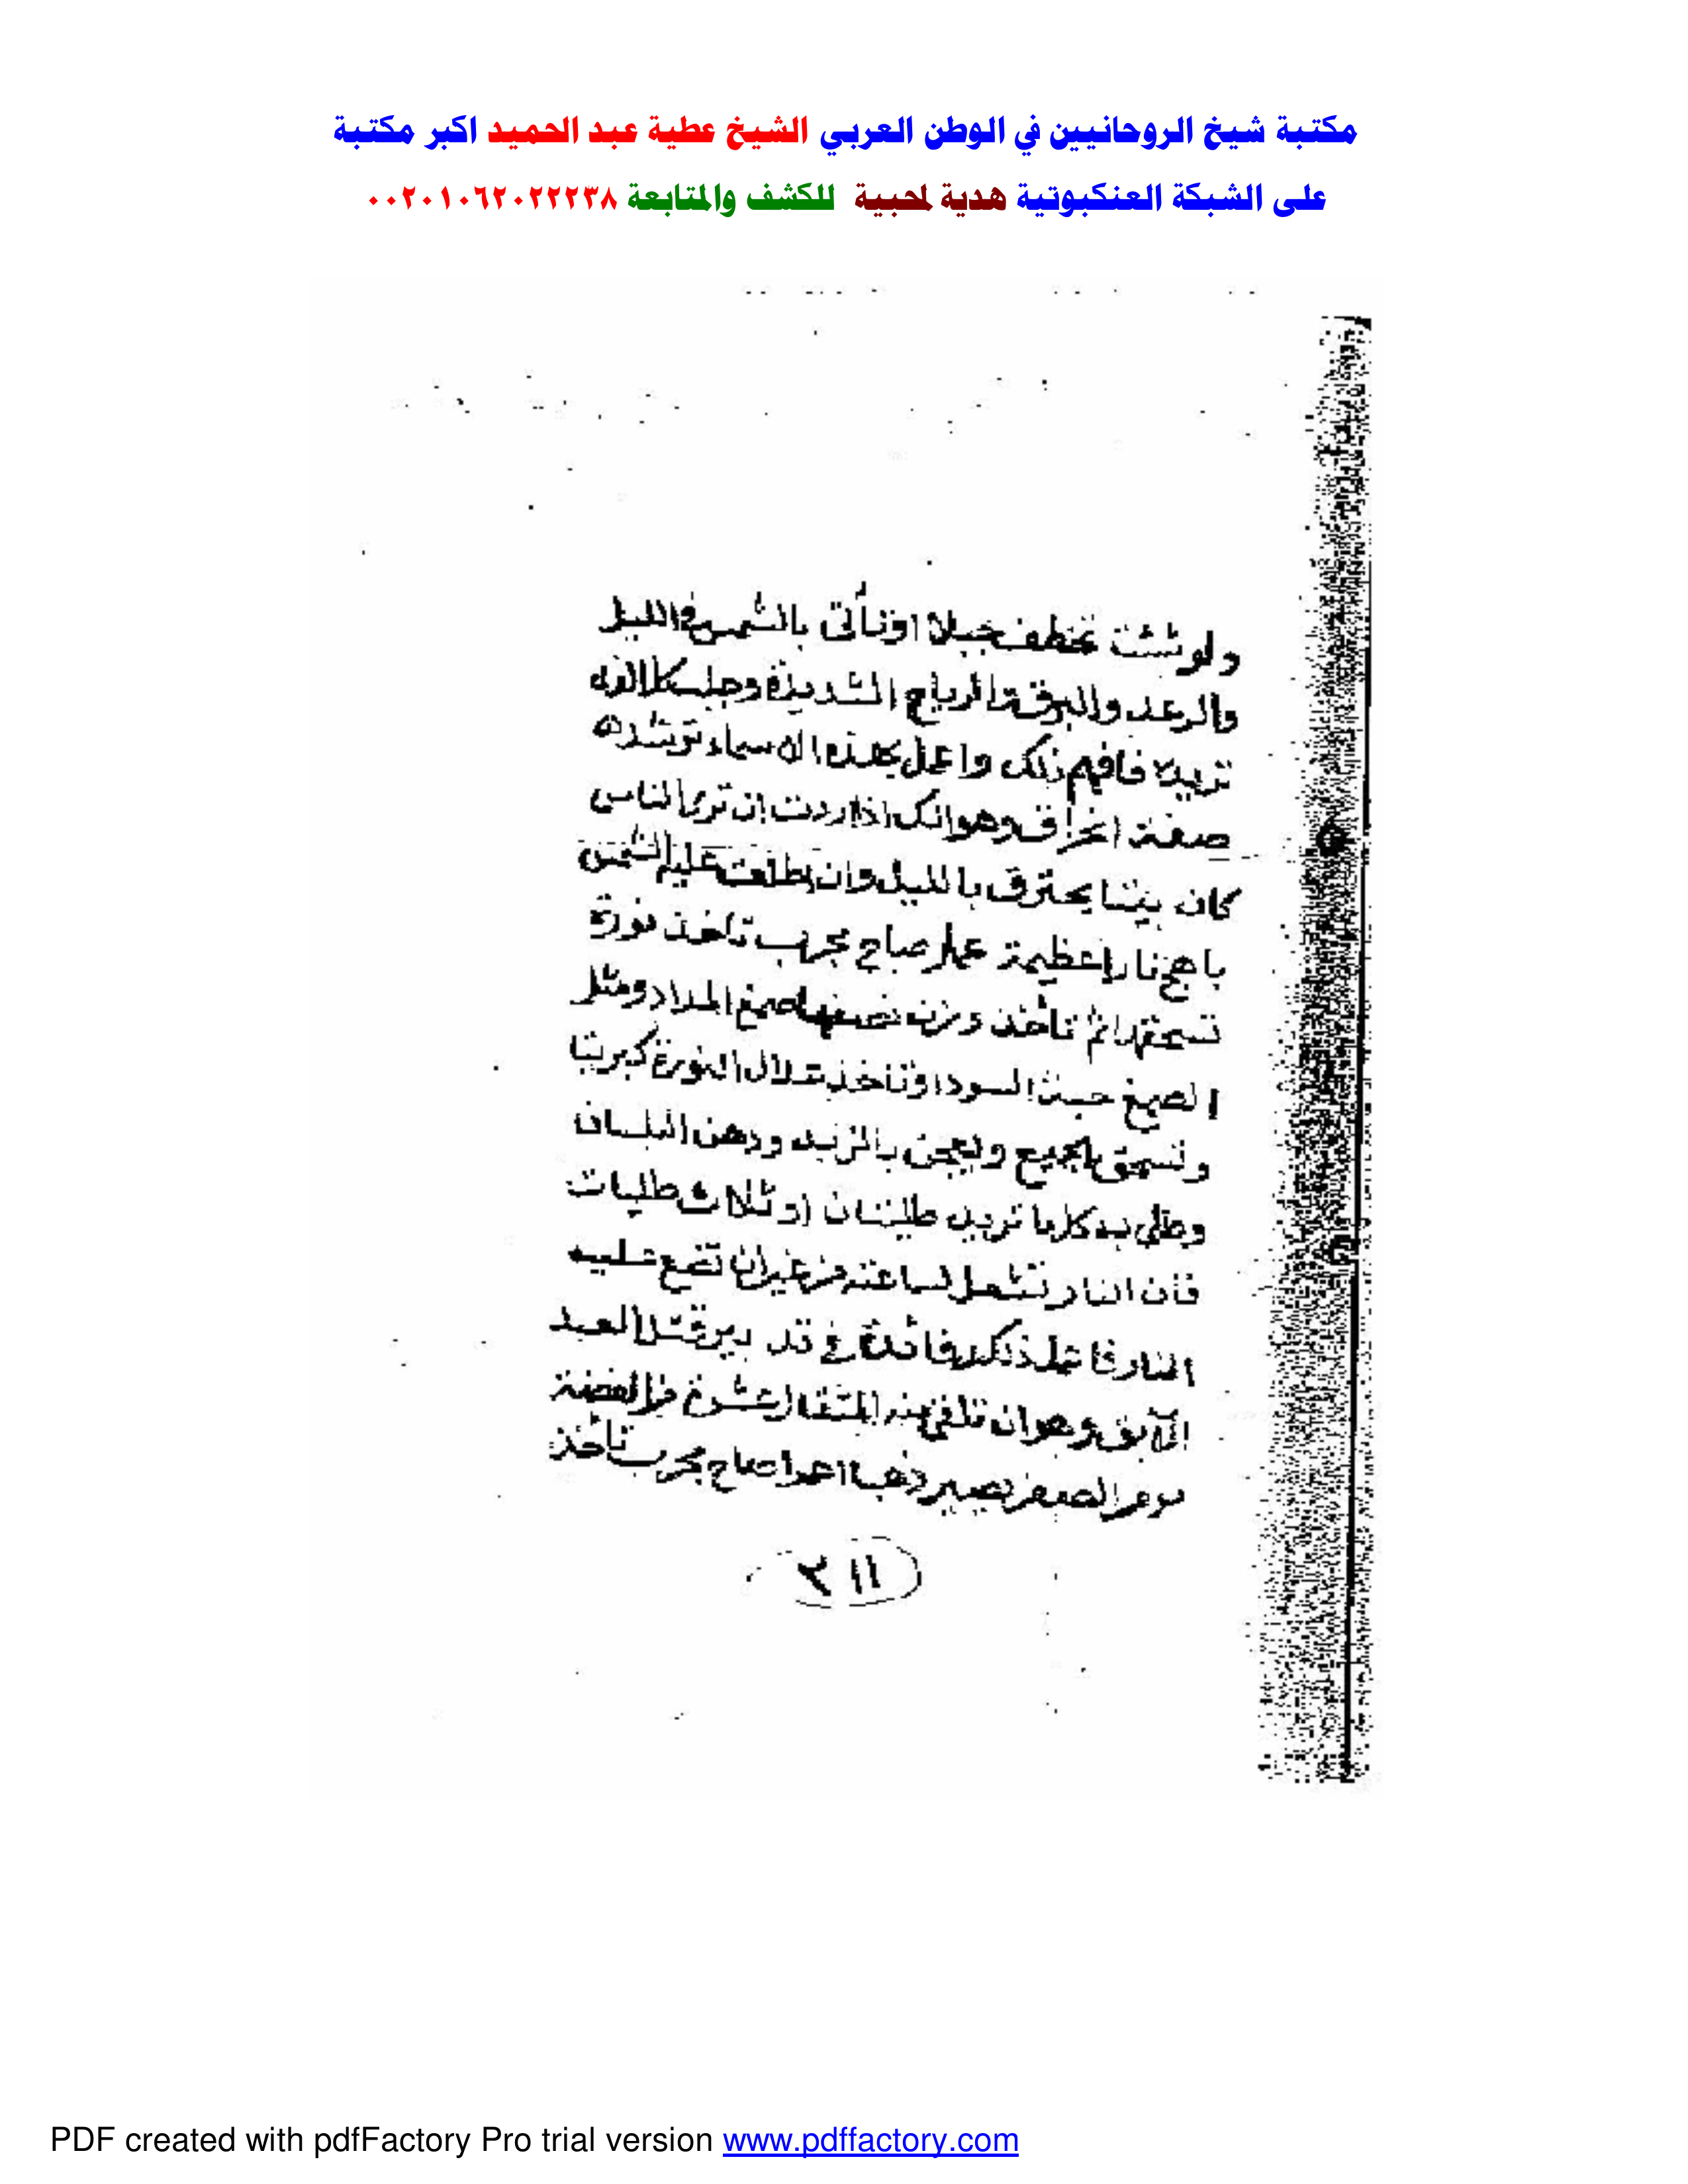 مكتبة شيخ الروحانيين في الوطن العربي الشيخ عطية عبد الحميد اكبر مكتبة
على الشبكة العنكبوتية هدية لمحبية للكشف والمتابعة ٠٠٢٠١٠٦٢٠٢٢٢٣٨
ولو شئت تخطف جبلا او تأتى بالشمس فى الليل
والرعد والبرق والرياح الشديدة وجلب كل الذى
تريده فافهم ذلك واعمل بهذه الاسماء ترشد
صفة احراق وهو انك اذا اردت ان ترى الناس
كان بيتنا يحترق بالليل وان طلعت عليه الشمس
باهج نارا عظيمة عمل صاح مجرب تاخذ نورة
تسحقها ثم تأخذ وزن نصفها صمغ المداد ومثل
الصمغ حبة السودا وتاخذ مثلا النورة كبريتا
وتسحق الجميع ويعجن بالزيد ودهن البلسان
وطلى به كل ما تريد طليتان او ثلاث طليات
فان النار تشعل لساعته من غير ان تضع عليه
النار فاعلم ذلك فائدة فى تدبير قتل العبد
الآبق وهو ان تلقى منه المثقال عشرة من الفضة
الصفر يصير ذهبا احمرا صاح مجرب تأخذ
٢١١
PDF created with pdfFactory Pro trial version www.pdffactory.com